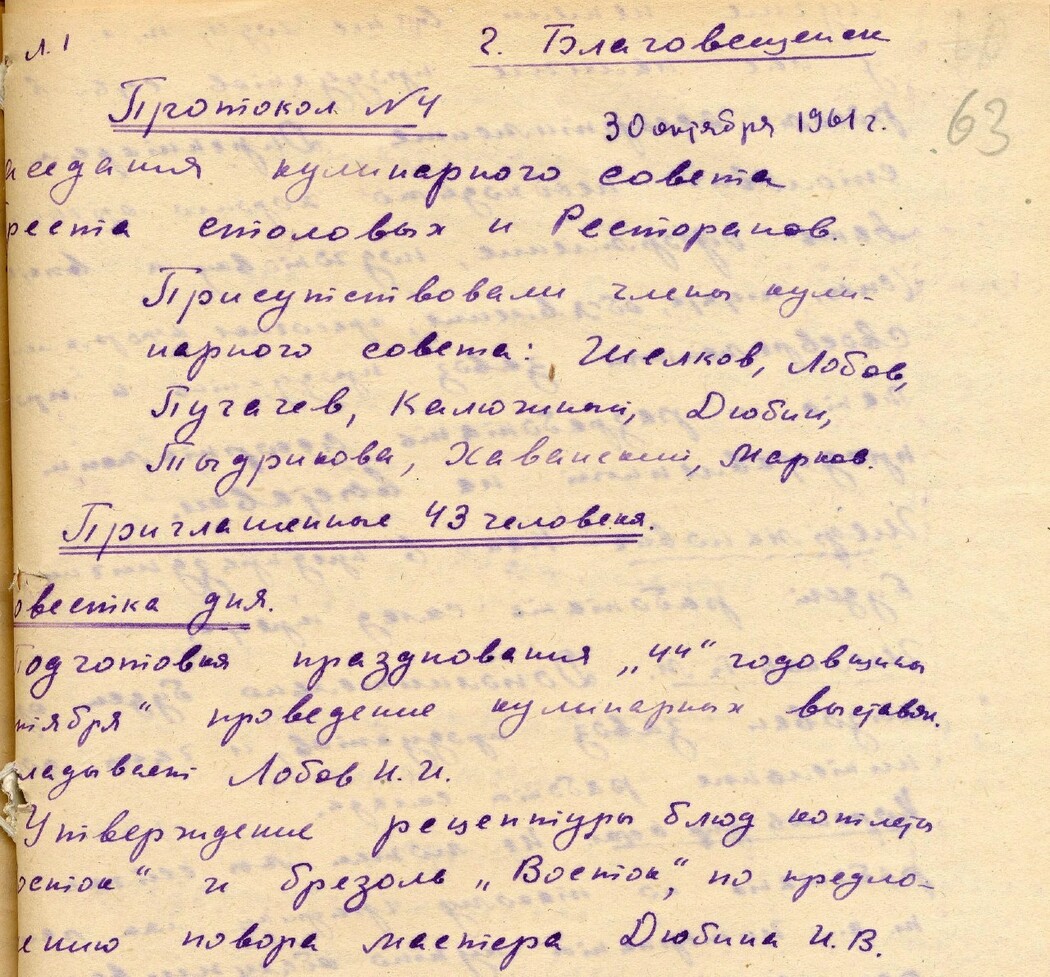 л. 1
г. Благовещенск
Протокол №4
30 октября 1961 г.
63
аседания кулинарного совета
реста столовых и Ресторанов.
Присутствовали члены кули-
нарного совета: Шелков, Лобов,
Пугачев, Калюжный, Дюбин,
Тыдрикова, Хаванский, Марков.
Приглашенные 43 человека.
овестка дня.
Подготовка празднования „44" годовщины
тября" проведение кулинарных выставок.
ладывает Лобов И.И.
Утверждение рецептуры блюд котлеты
осток" и брезоль „Восток", по предло-
ению повора мастера Дюбина И.В.